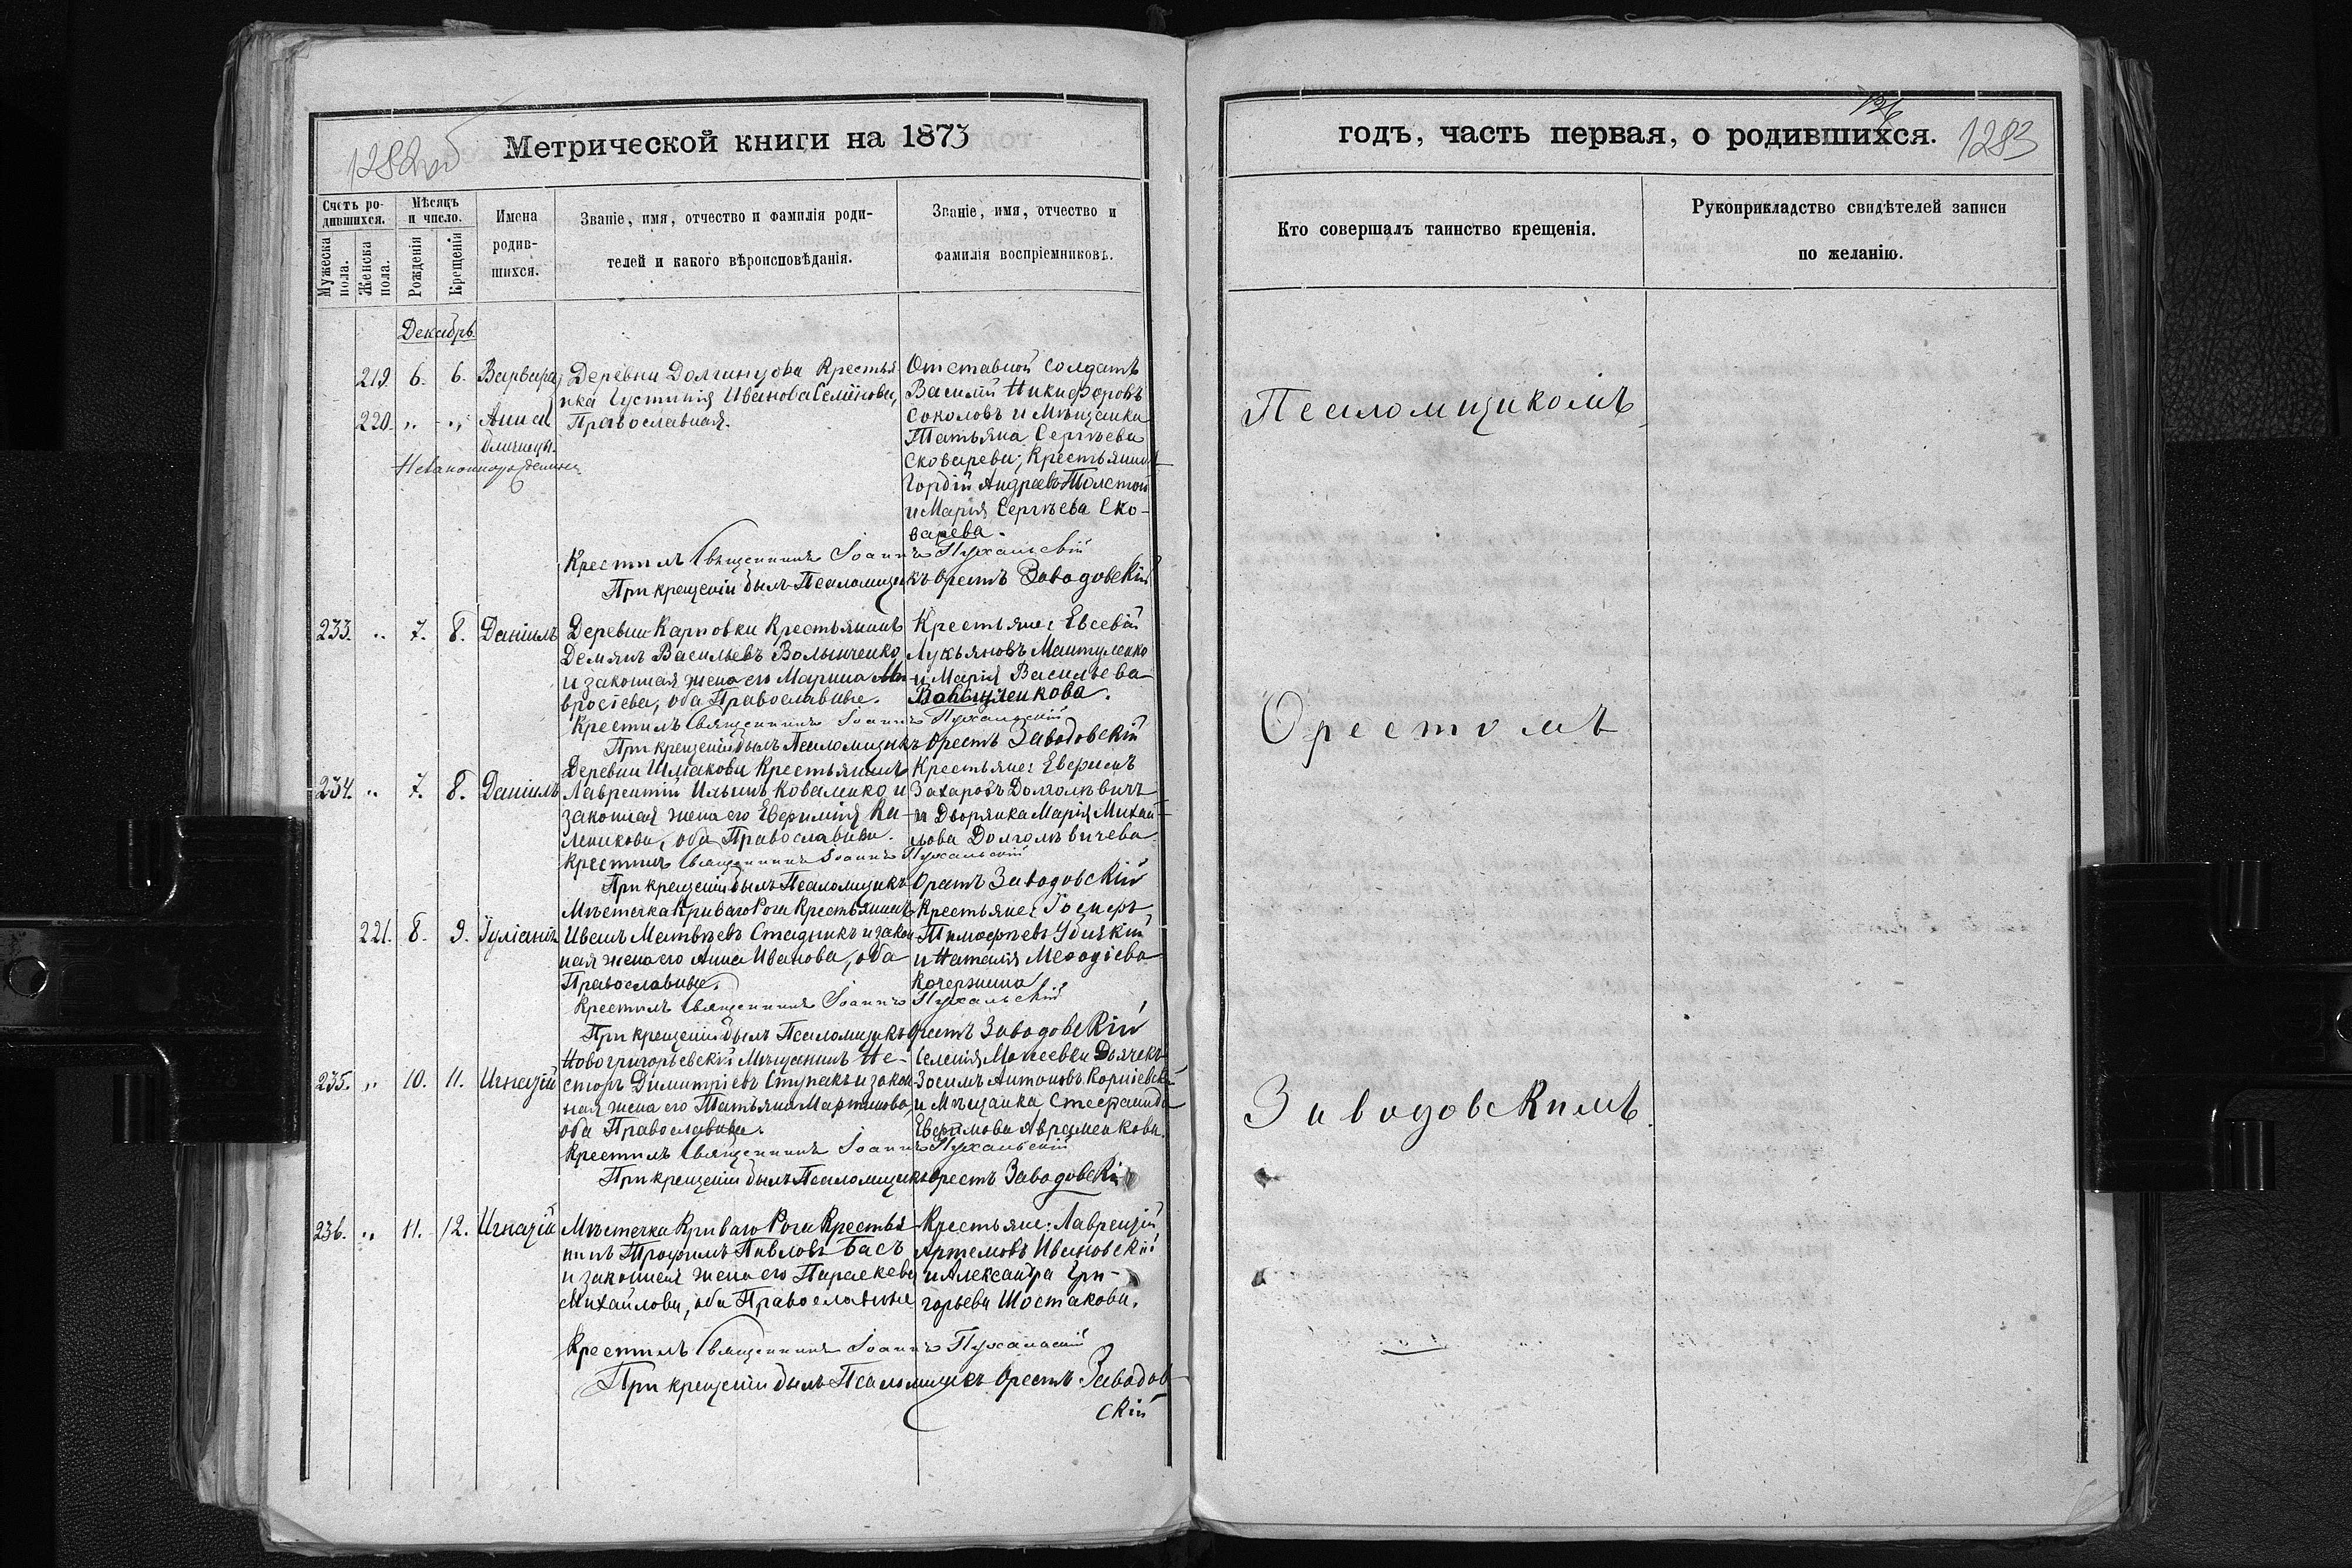 1282об
Метрической книги на 1873
Счетъ ро-
дившихся.
Мужеска пола.
Женска пола.
Мѣсяцъ
и число.
Рожденія
Крещенія
Имена
родив-
шихся.
Званіе, имя, отчество и фамилія роди-
телей и какого вѣроисповѣданія.
Званіе, имя, отчество и
фамилія воспріемниковъ.
Декабрь
219. 6. 6. Варвара,
220. „ „ Анна
близнецы.
Незаконнорожденныя
Деревни Долгинцова Крестья
нка Іустинія Иванова
Православная.
Отставной солдатъ
Василій Никифоровъ
Соколовъ и Мѣщанка
Татьяна Сергѣева
Сковарева; Крестьянинъ
Гордій Андреевъ Толстой
и Марія Сергѣева Ско-
варева.
Крестилъ Священникъ Іоаннъ Пухальскій
При крещеніи былъ Псаломщикъ Орестъ Заводовскій
233. „ 7. 8. Даніилъ
Деревни Карповки Крестьянинъ
Демянъ Васильевъ Волынченко
и законная жена его Марина Ма-
вросіева, оба Православные.
Крестьяне: Евсевій
Лукьяновъ
и Марія Васильева
Крестилъ Священникъ Іоаннъ Пухальскій
При крещеніи былъ Псаломщикъ Орестъ Заводовскій
234. „ 7. 8. Даніилъ
Деревни Шмакова Крестьянинъ
Лаврентій Ильинъ Коваленко и
законная жена его Евфимія Ка-
леникова, оба Православные.
Крестьяне: Евфимъ
Захаровъ Долголѣвичъ
и Дворянка Марія Михай-
лова Долголѣвичева
Крестилъ Священникъ Іоаннъ Пухальскій
При крещеніи былъ Псаломщикъ Орестъ Заводовскій
221. 8. 9. Іуліанія
Мѣстечка Криваго Рога Крестьянинъ
Иванъ Матвѣевъ Стадникъ и закон
ная жена его Анна Иванова, оба
Православные.
Крестьяне:
Тимофѣевъ
и Наталія Меѳодіева
Крестилъ Священникъ Іоаннъ Пухальскій
При крещеніи былъ Псаломщикъ Орестъ Заводовскій
235. „ 10. 11. Игнатій
Новогригорьевскій Мѣщанинъ Не-
сторъ Димитріевъ Ступакъ и закон
ная жена его Татьяна Мартинова,
оба Православные.
Селенія Моисеевки Дьячекъ
Зосимъ Антоновъ Корніевскій
и Мѣщанка Стефанида
Евфимова Авраменкова.
Крестилъ Священникъ Іоаннъ Пухальскій
При крещеніи былъ Псаломщикъ Орестъ Заводовскій
236. „ 11. 12. Игнатій
Мѣстечка Криваго Рога Крестья
нинъ Трофимъ Павловъ Басъ
и законная жена его Параскева
Михайлова, оба Православные
Крестьяне: Лаврентій
Артемовъ Ивановскій
и Александра Гри-
горьева Шостакова.
Крестилъ Священникъ Іоаннъ Пухальскій
При крещеніи былъ Псаломщикъ Орестъ Заводов
скій
годъ, часть первая, о родившихся.
1283
Кто совершалъ таинство крещенія.
Рукоприкладство свидѣтелей записи
по желанію.
Псаломщикомъ
Орестомъ
Заводовскимъ.